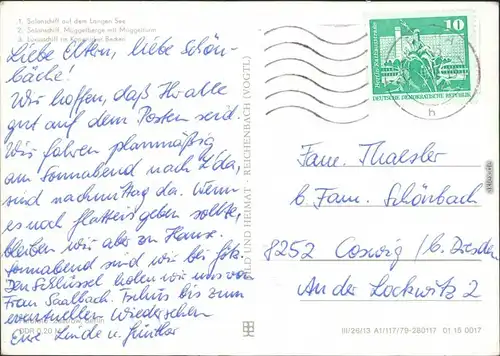 1. Salonschiff auf dem Langen See
2. Salonschiff, Müggelberge mit Müggelturm
3. Luxusschiff im Köpenicker Becken
Liebe Eltern, liebe Schön-
bäche!
Wir hoffen, daß Ihr alle
gut auf dem Posten seid.
Wir fahren planmäßig
am Sonnabend nach L'da,
sind nachmittag da. Wenn
es noch Glatteis geben sollte,
bleiben wir aber zu Hause.
Sonnabend sind wir bei
Den Schlüssel holen wir uns von
Frau Saalbach. Tschüs bis zum
eventuellen Wiedersehen
Eure Linde u. Günther
DDR 0,20 M
BILD UND HEIMAT · REICHENBACH (VOGTL)
10
DEUTSCHE DEMOKRATISCHE REPUBLIK
h
Fam. Thaesler
b. Fam. Schönbach
8252 Coswig / b. Dresden
An der Lockwitz 2
III/26/13 A1/117/79-280117 01 15 0017